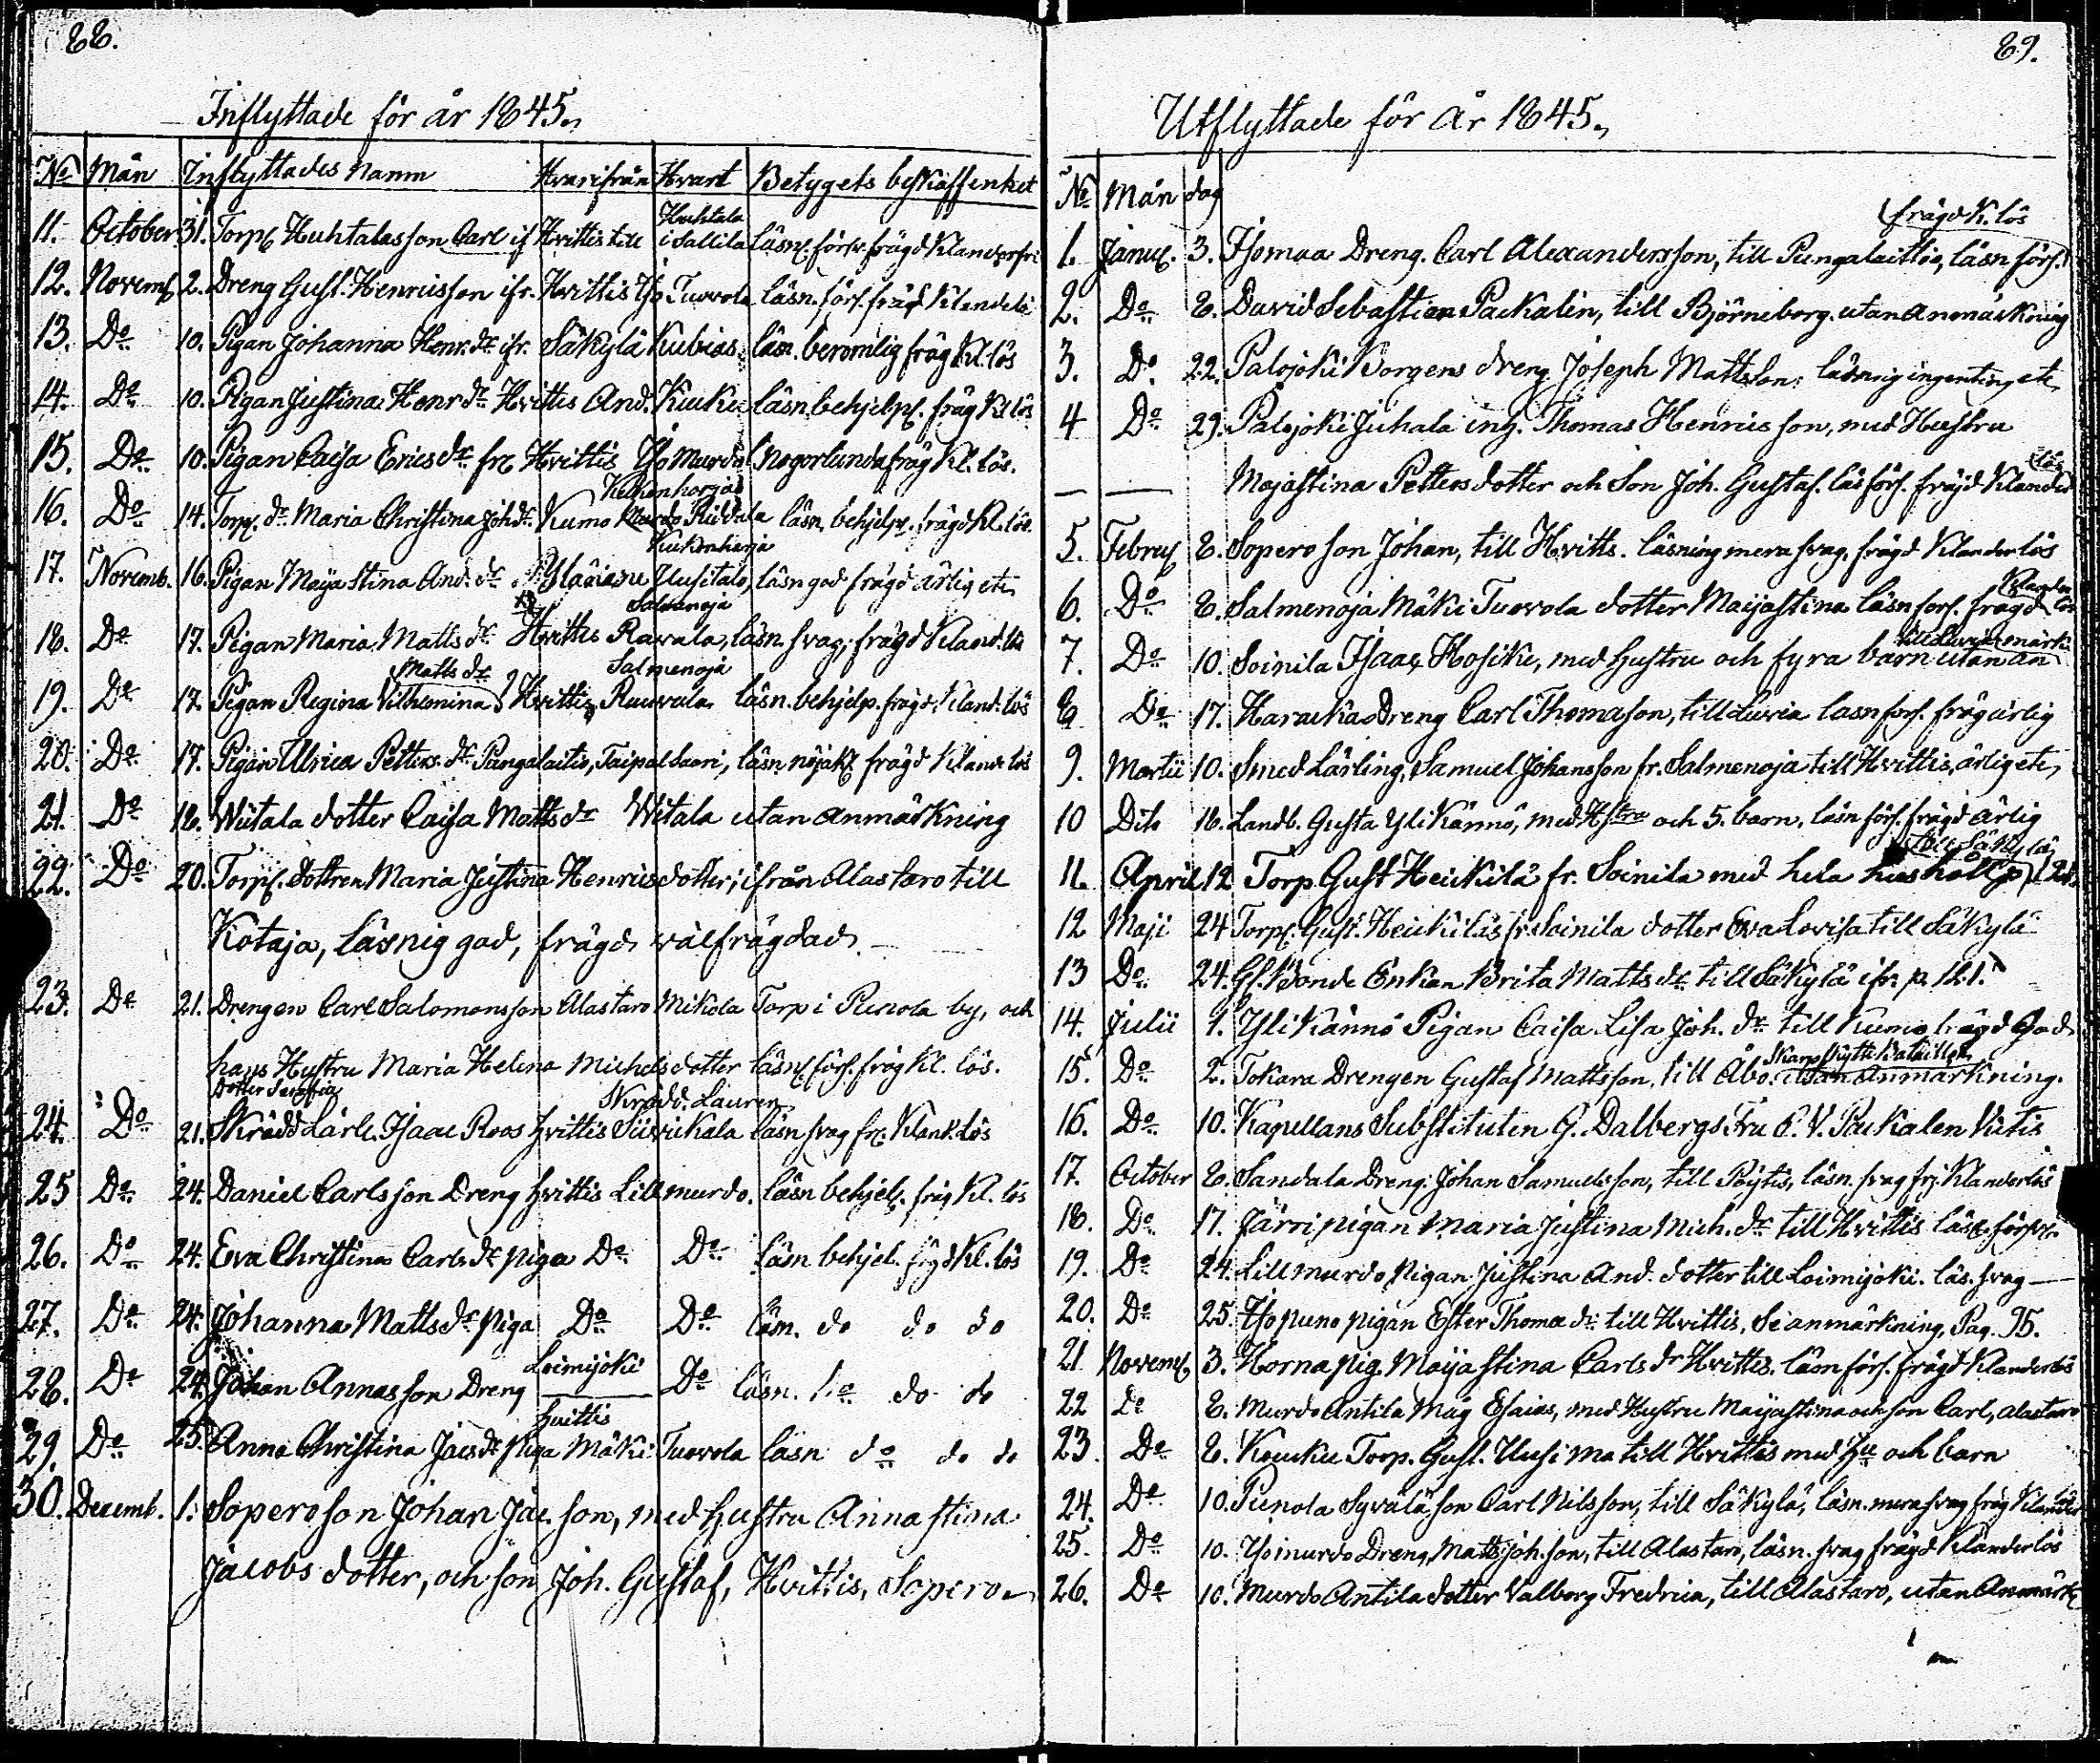 88.
Inflyttade för år 1845.
No Mån Inflyttades namn Hvarifrån Hvart Betygets beskaffenhet
Huhtala
11. October 31. Torp. Huhtalasson Carl if Hvittis till i Sallila läsn. försv. frägd Klanderfri
12. Novemb 2. Dreng Gust. Henricsson ifr. Hvittis Tuovola läsn. förs. fräg Klanderlö
13. Do 10. Pigan Johanna Henr. dr ifr. Säkylä Kubias läsn. beromlig fräg Kl. lös
14. Do 10. Pigan Justina Henr dr Hvittis And. Kuku läsn behjelpl. fräg Kl lös
15. Do 10. Pigan Caisa Erics dr fr Hvittis Iso Murdo Nogorlunda fräg Kl. lös.
Keikenharja
16. Do 14. Torp. dr Maria Christina Joh dr Kumo Murdo läsn behjelpl. frägd Kl. lös.
Kukonharja
17. Novemb. 16. Pigan Maja Stina And. dr Yläniene Uusitalo, läsn god frägd ärlig etc
Salmenoja
18. Do 17. Pigan Maria Matts dr Hvittis Ravala, läsn. svag, frägd Kland. lös
Matts dr Salmenoja
19. Do 17. Pigan Regina Vilhemina Hvittis Ruuvala läsn. behjelp. frägd. Kland. lös
20. Do 17. Pigan Ulrica Petters. dr Pungalaitio, Taipalsaari, läsn nöjakt frägd Klande lös
21. Do 18. Wiitala dotter Caisa Matts dr Witala utan anmärkning
22. Do 20. Torp. dottren Maria Justina Henricsdotter, ifrån Alastaro till
Kotaja, läsnig god, frägd välfrägdad.
23. Do 21. Drengen Carl Salomonsson Alastaro Mikola Torp i Punola by, och
hans Hustru Maria Helena Michelsdotter läsn förs. fräg Kl. lös.
Dotter Serafia Skrädd. Lauren
24. Do 21. Skrädd Lärl. Isaac Roos Hvittis läsn svag fr. Klank. lös
25 Do 24. Daniel Carlsson Dreng Hvittis Lillmurdo. läsn behjelp. fräg Kl. lös
26. Do 24. Eva Christina Carls dr piga Do Do läsn behjel. frgd Kl. lös
27. Do 24. Johanna Matts dr piga Do Do läsn. do do do
Loimijoki
28. Do 24. Johan Annasson Dreng Do läsn. do do do
Hvittis
29. Do 25. Anna Christina Jacs dr piga Mäki Tuovola läsn do do do
30. Decemb. 1. Soperoson Johan Jac. son, med Hustru Annastina
Jacobs dotter, och son Joh. Gustaf, Hvittis, Sopero
89.
Utflyttade för År 1845.
No Mån dag
frägd K. lös
1. Januj. 3. Isomaa Dreng. Carl Alexandersson, till Pungalaitio, läsn förs.
2. Do 8. David Sebastian Packalén, till Björneborg. utan Anmärkning
3. Do 22. Palojoki Borgens dreng Joseph Mattsson, läsnig ingenting etc
4 Do 29. Palojoki Juhala inh. Thomas Henricsson, med Hustru
lös
Majastina Petters dotter och Son Joh. Gustaf. läs förs. fräjd Klander
5. Februj 8. Sopero son Johan, till Hvitts. läsning mera svag, frägd Klanderlös
Klander
6. Do 8. Salmenoja Mäki Tuovola dotter Maijastina läsn förs. frägd lös
till Luvia märk
7. Do 10. Soinila Isaac Hosike, med Hustru och fyra barn utan an
8 Do 17. Harakas Dreng Carl Thomason, till Luvia läsn förs. fräg ärlig
9. Martii 10. Smed Lärling, Samuel Johansson fr. Salmenoja till Hvittis, ärlig etc,
10 Dito 18. Landb. Gusta Ylikännö, med Hstru och 5. barn. läsn förs. frägd ärlig
till Säkylä
11. April 12 Torp Gust Heickilä fr. Soinila med hela hushåll
12 Maji 24 Torp. Gust. Heickiläs fr. Soinila dotter Eva Lovisa till Säkylä
13 Do 24. Gl. Bonde Enkan Brita Matts dr till Säkylä ifr. p. 141.
14. Julii 1. Ylikännö Pigan Caisa Lisa Joh. dr till Kumo frägd God
Skarpskytte Bataillon
15. Do 2. Tokara Drengen Gustaf Mattsson, till Åbo. utan Anmärkning.
16. Do 10. Kapellans Substituten G. Dalbergs Fru C. V. Packalen
17. October 8. Sandala Dreng. Johan Samuelsson, till Pöytis, läsn. svag frj. Klanderlös
18. Do 17. Järvi pigan Maria Justina Mich. dr till Hvittis läsn. försv.
19. Do 24. Lillmurdo Pigan Justina And. dotter till Loimijoki. läs. svag
20. Do 25. Iso puno pigan Ester Thomæ dr till Hvittis. Se anmärkning, Pag. 95.
21 Novemb 3. Horna pig. Maijastina Carls dr Hvittis. läsn förs. frägd Klanderlös
22 Do 8. Murdo Antila Måg Esaias, med Hustru Maijastina och son Carl, Alastaro
23 Do 8. Kouku Torp. Gust. Uusima till Hvittis med Hu och barn
24. Do 10. Punola Syvälä son Carl Nilsson, till Säkylä, läsn. mera svag fräg Klander lös
25. Do 10. Isomurdo Dreng, Matts Joh. son, till Alastaro, läsn. svag frägd Klanderlös
26. Do 10. Murdo Antila dotter Valborg Fredrica, till Alastaro, utan Anmärk